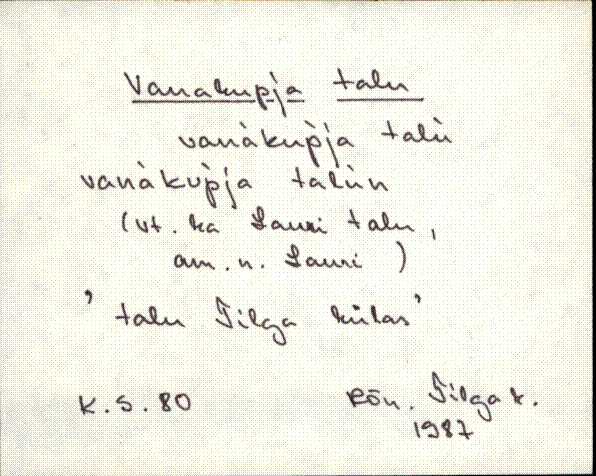 Vanakupja talu
vanàkup̀ja talù
vanàkup̀ja talùn
(vt. ka Lauri talu,
am. n. Lauri)
' talu Tilga külas'
K. S. 80 Rõn. Tilga k.
1987